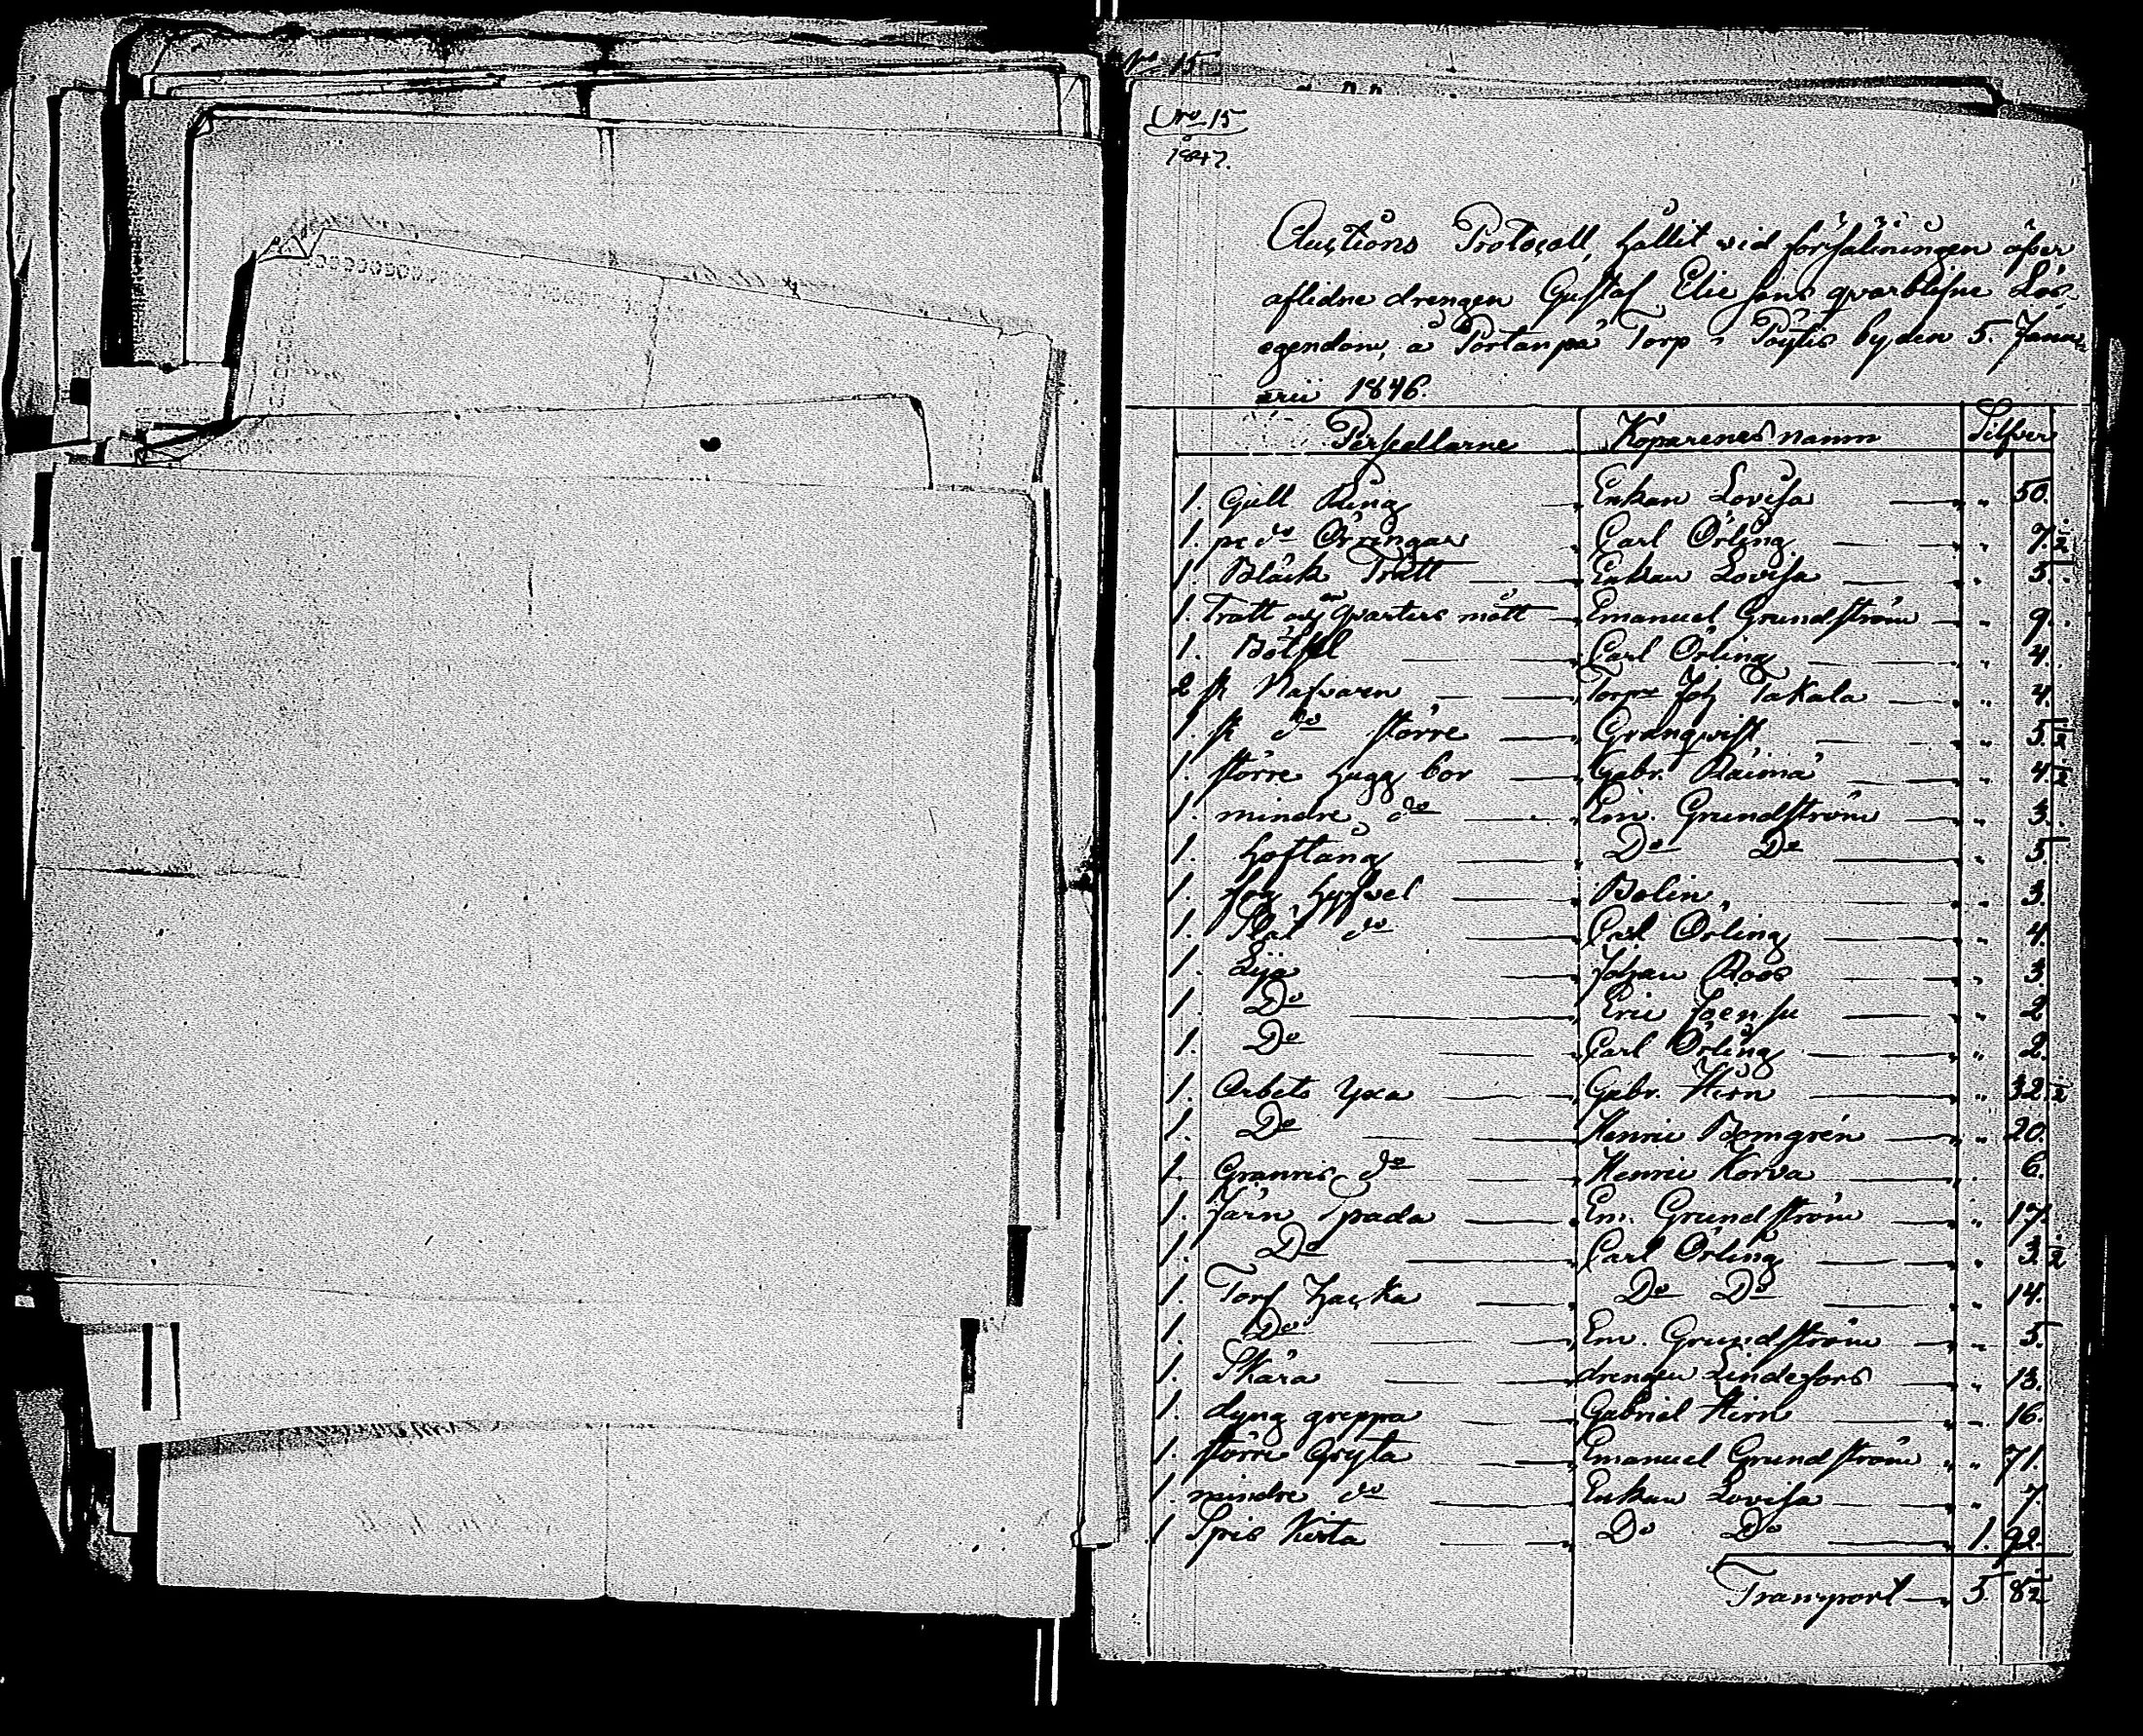 No 15
No 15
1847.
Auctions Protocoll, hållit vid försäliningen öfver
aflidne drengen Gustaf Elie sons qvarblifne Lös-
egendom, å Portanpä Torp i Pöytis by den 5. Janu-
arii 1846.
Perselarne Köparenes namn Silfver
1. Gull Ring Enkan Lovisa " 50.
1. pr do Örringar Carl Örling " 7. 1/2
1. Bläck Tratt Enkan Lovisa " 5.
1. Tratt och qvarters mått Emanuel Grundström " 9.
1. Carl Örling " 4.
2 st Nafvaren Torpr Joh Takala " 4.
1. st do större Granqvist " 5. 1/2
1. större hugg bor Gabr. Räimä " 4. 1/2
1. mindre do Em. Grundström " 3.
1. Hoftång Do Do " 5.
1. fog hyfvel Bolin " 3.
1. Slät do Carl Örling " 4.
1. Lija Johan Roos " 3.
1. Do Eric Joensu " 2
1. Do Carl Örling " 2.
1. Arbets Yxa Gabr. Hirn " 32. 1/2
1. Do Henric Blomgrén " 20.
1. Granris do Henric Korva " 6.
1. Järn Spada Em. Grundström " 17.
1. Do Carl Örling " 3. 1/2
1. Torf Hacka Do Do " 14.
1. Do Em. Grundström " 5.
1. Skära drengen Lindefors " 13.
1. dyng greppa Gabriel Hirn " 16.
1. större Gryta Emanuel Grundström " 71.
1. mindre do Enkan Lovisa " 7.
1 Spis Do Do 1. 92.
Transport 5. 82